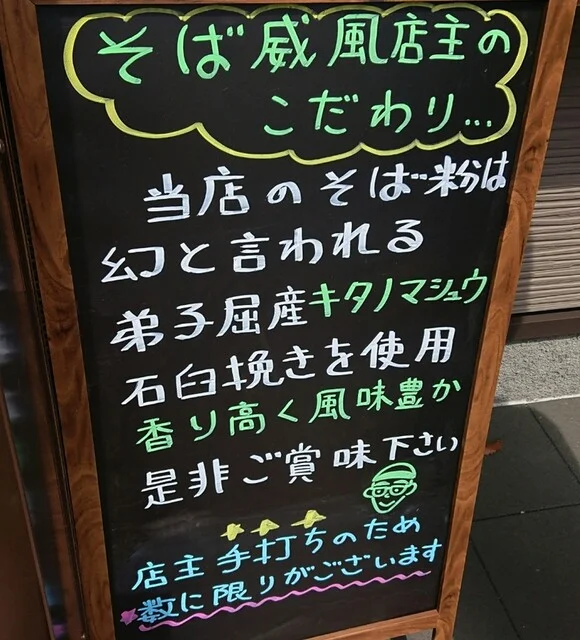 そば威風店主の
こだわり…
当店のそば粉は
幻と言われる
弟子屈産キタノマシュウ
石臼挽きを使用
香り高く風味豊か
是非ご賞味下さい
店主手打ちのため
数に限りがございます